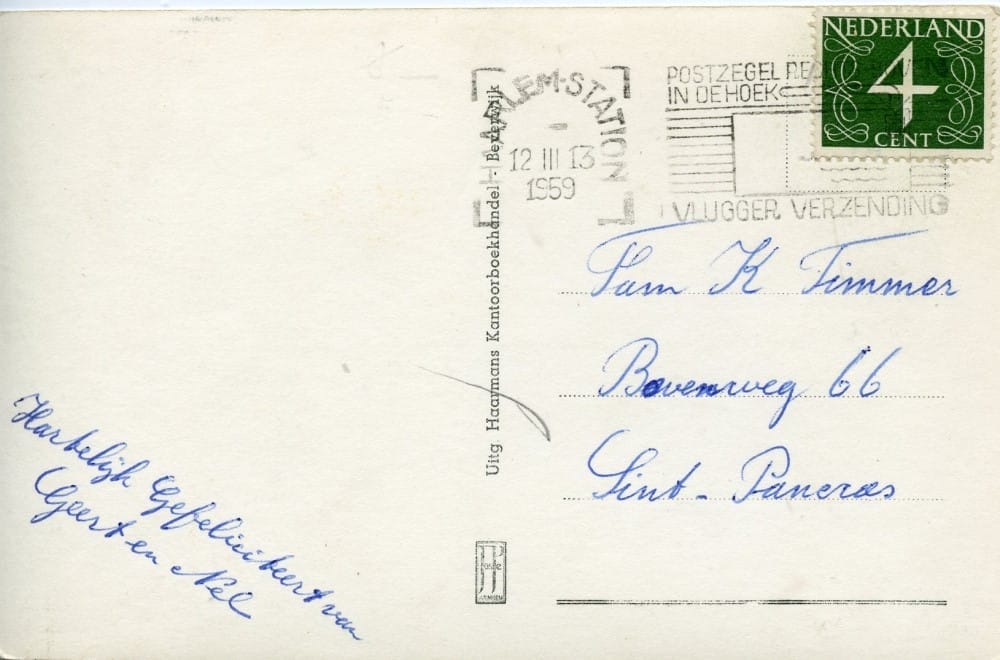 NEDERLAND
4
CENT
HAARLEM-STATION
12 III 13
1959
POSTZEGEL RE
IN DE HOEK
VLUGGER VERZENDING
Uitg. Haarmans Kantoorboekhandel - Beverwijk
Fam K Timmer
Bovenweg 66
Sint - Pancras
Hartelijk Gefeliciteert van
Geert en Nel